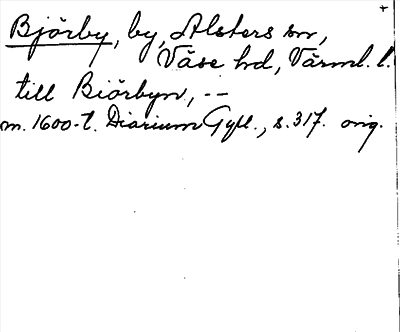 Bjørby, by, Alsters sn,
Väse hd, Värml. l.
till Biörbyn, --
m. 1600-t. Diarium Gyll., s. 317. orig.